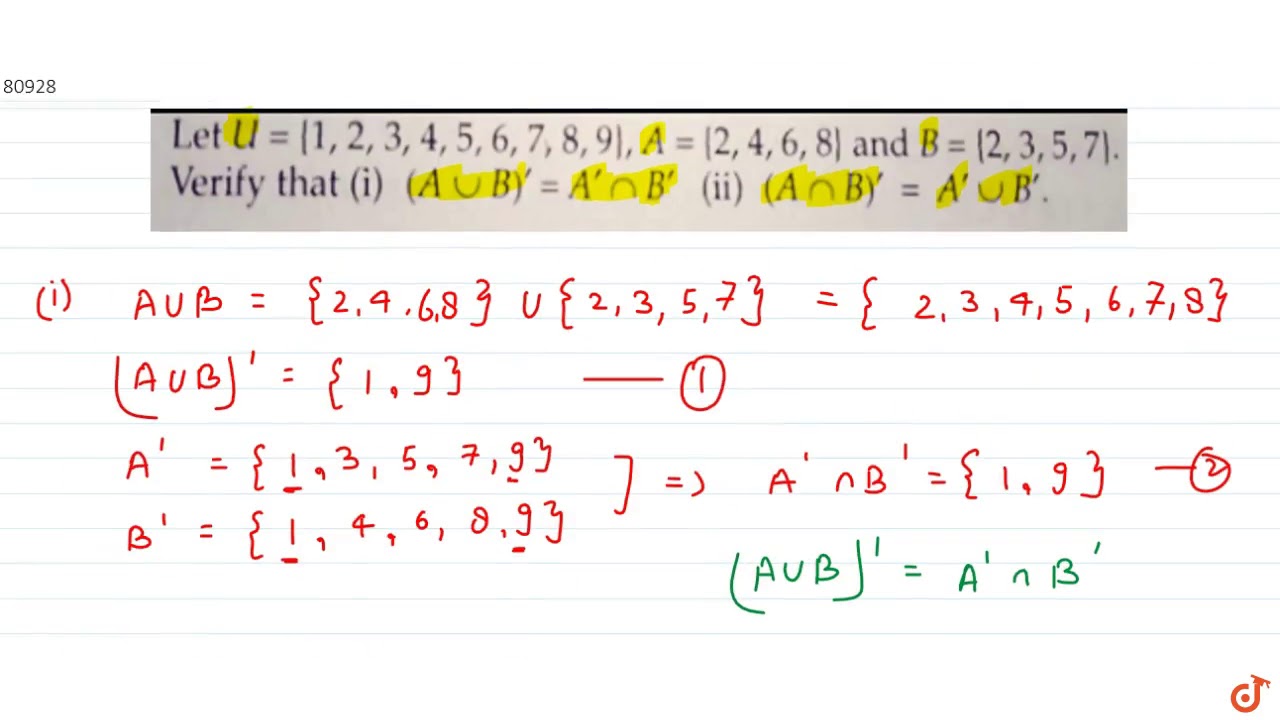 80928
Let U = {1, 2, 3, 4, 5, 6, 7, 8, 9}, A = {2, 4, 6, 8} and B = {2, 3, 5, 7}.
Verify that (i) (A ∪ B)' = A' ∩ B' (ii) (A ∩ B)' = A' ∪ B'.
(i) A∪B = {2,4.6,8} ∪ {2,3,5,7} = { 2,3,4,5,6,7,8}
(A∪B)' = {1,9} —— ①
A' = {1,3,5,7,9}
] => A' ∩ B' = {1,9} — ②
B' = {1,4,6,8,9}
(A∪B)' = A' ∩ B'